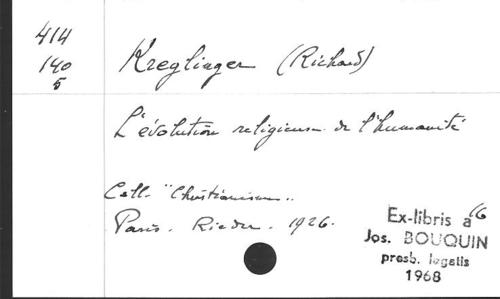 414
140
5
Kreglinger (Richard)
L'évolution religieuse de l'humanité
Coll. "Christianisme"
Paris. Rieder. 1926.
16
Ex-libris a
Jos. BOUQUIN
presb. legatis
1968